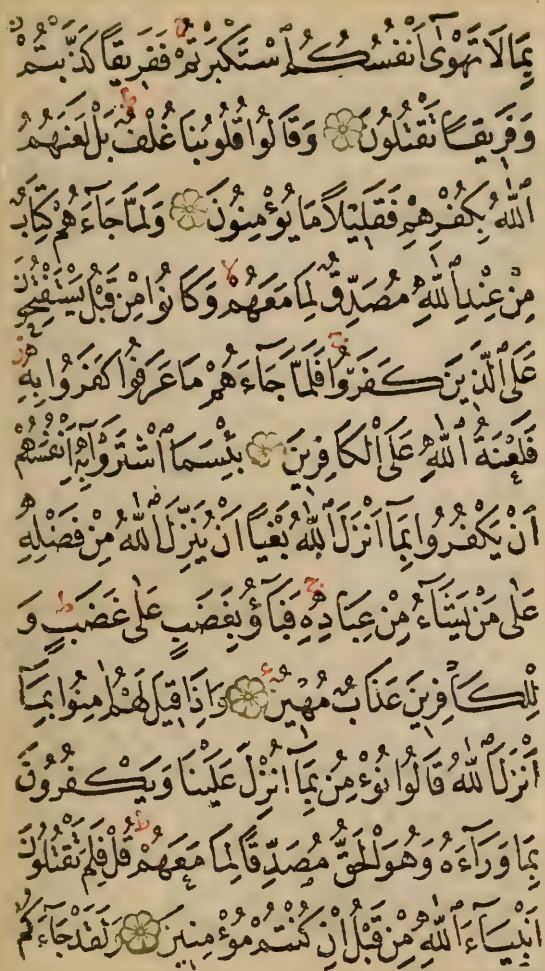 بِمَا لَا تَهْوٰٓى اَنْفُسُكُمُ اسْتَكْبَرْتُمْ فَفَرِيقًا كَذَّبْتُمْ
وَفَرِيقًا تَقْتُلُونَ وَقَالُوا قُلُوبُنَا غُلْفٌ بَلْ لَعَنَهُمُ
اللّٰهُ بِكُفْرِهِمْ فَقَلِيلًا مَا يُؤْمِنُونَ وَلَمَّا جَآءَهُمْ كِتَابٌ
مِنْ عِنْدِ اللّٰهِ مُصَدِّقٌ لِمَا مَعَهُمْ وَكَانُوا مِنْ قَبْلُ يَسْتَفْتِحُونَ
عَلَى الَّذِينَ كَفَرُوا فَلَمَّا جَآءَهُمْ مَا عَرَفُوا كَفَرُوا بِهِ
فَلَعْنَةُ اللّٰهِ عَلَى الْكَافِرِينَ بِئْسَمَا اشْتَرَوْا بِهِٓ اَنْفُسَهُمْ
اَنْ يَكْفُرُوا بِمَآ اَنْزَلَ اللّٰهُ بَغْيًا اَنْ يُنَزِّلَ اللّٰهُ مِنْ فَضْلِهِ
عَلٰى مَنْ يَشَآءُ مِنْ عِبَادِهِ فَبَآؤُ بِغَضَبٍ عَلٰى غَضَبٍ وَ
لِلْكَافِرِينَ عَذَابٌ مُهِينٌ وَاِذَا قِيلَ لَهُمْ اٰمِنُوا بِمَآ
اَنْزَلَ اللّٰهُ قَالُوا نُؤْمِنُ بِمَآ اُنْزِلَ عَلَيْنَا وَيَكْفُرُونَ
بِمَا وَرَآءَهُ وَهُوَ الْحَقُّ مُصَدِّقًا لِمَا مَعَهُمْ قُلْ فَلِمَ تَقْتُلُونَ
اَنْبِيَآءَ اللّٰهِ مِنْ قَبْلُ اِنْ كُنْتُمْ مُؤْمِنِينَ وَلَقَدْ جَآءَكُمْ